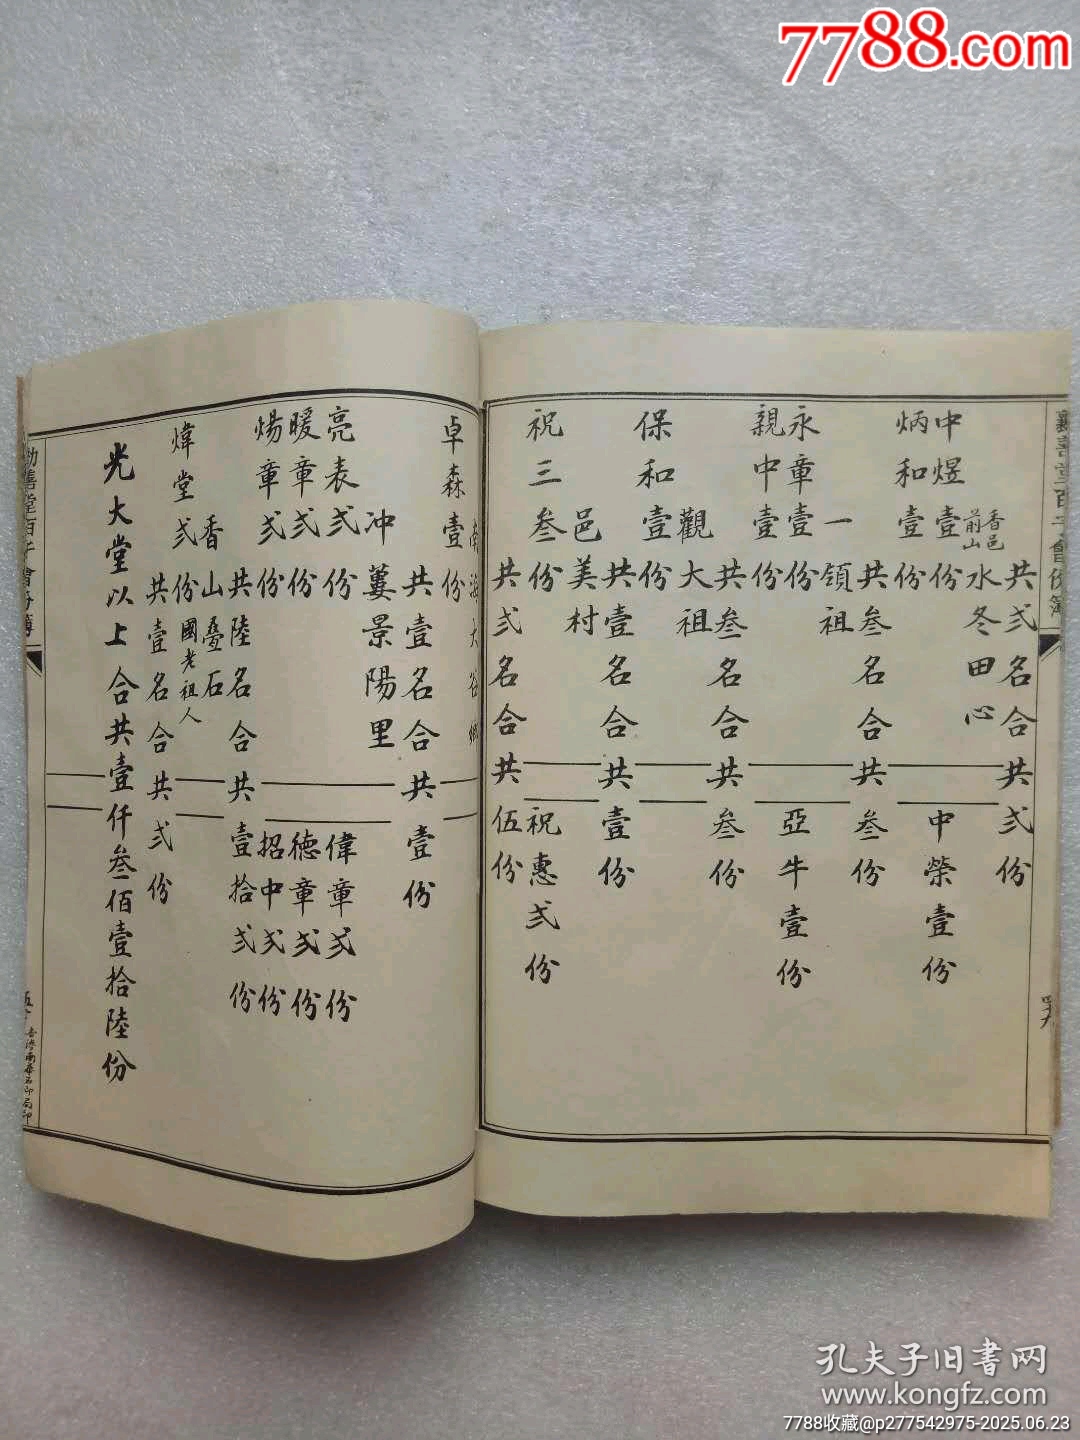 7788.com
共弍名合共弍份
香邑
前山
水冬田心
中煜壹份
中榮壹份
炳和壹份
共叁名合共叁份
一領祖
永章壹份
亞牛壹份
親中壹份
共叁名合共叁份
觀大祖
保和壹份
共壹名合共壹份
邑美村
祝三叁份
祝惠弍份
共弍名合共伍份
卓森壹份
共壹名合共壹份
冲蔞景陽里
亮表弍份
偉章弍份
暖章弍份
德章弍份
煬章弍份
招中弍份
共陸名合共壹拾弍份
香山疊石
國老祖人
煒堂弍份
共壹名合共弍份
光大堂以上合共壹仟叁佰壹拾陸份
孔夫子旧書网
www.kongfz.com
7788收藏@p277542975-2025.06.23